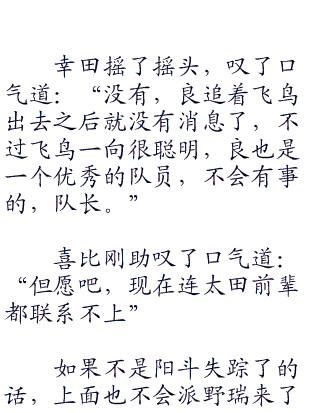 幸田摇了摇头，叹了口
气道：“没有，良追着飞鸟
出去之后就没有消息了，不
过飞鸟一向很聪明，良也是
一个优秀的队员，不会有事
的，队长。”
喜比刚助叹了口气道：
“但愿吧，现在连太田前辈
都联系不上”
如果不是阳斗失踪了的
话，上面也不会派野瑞来了